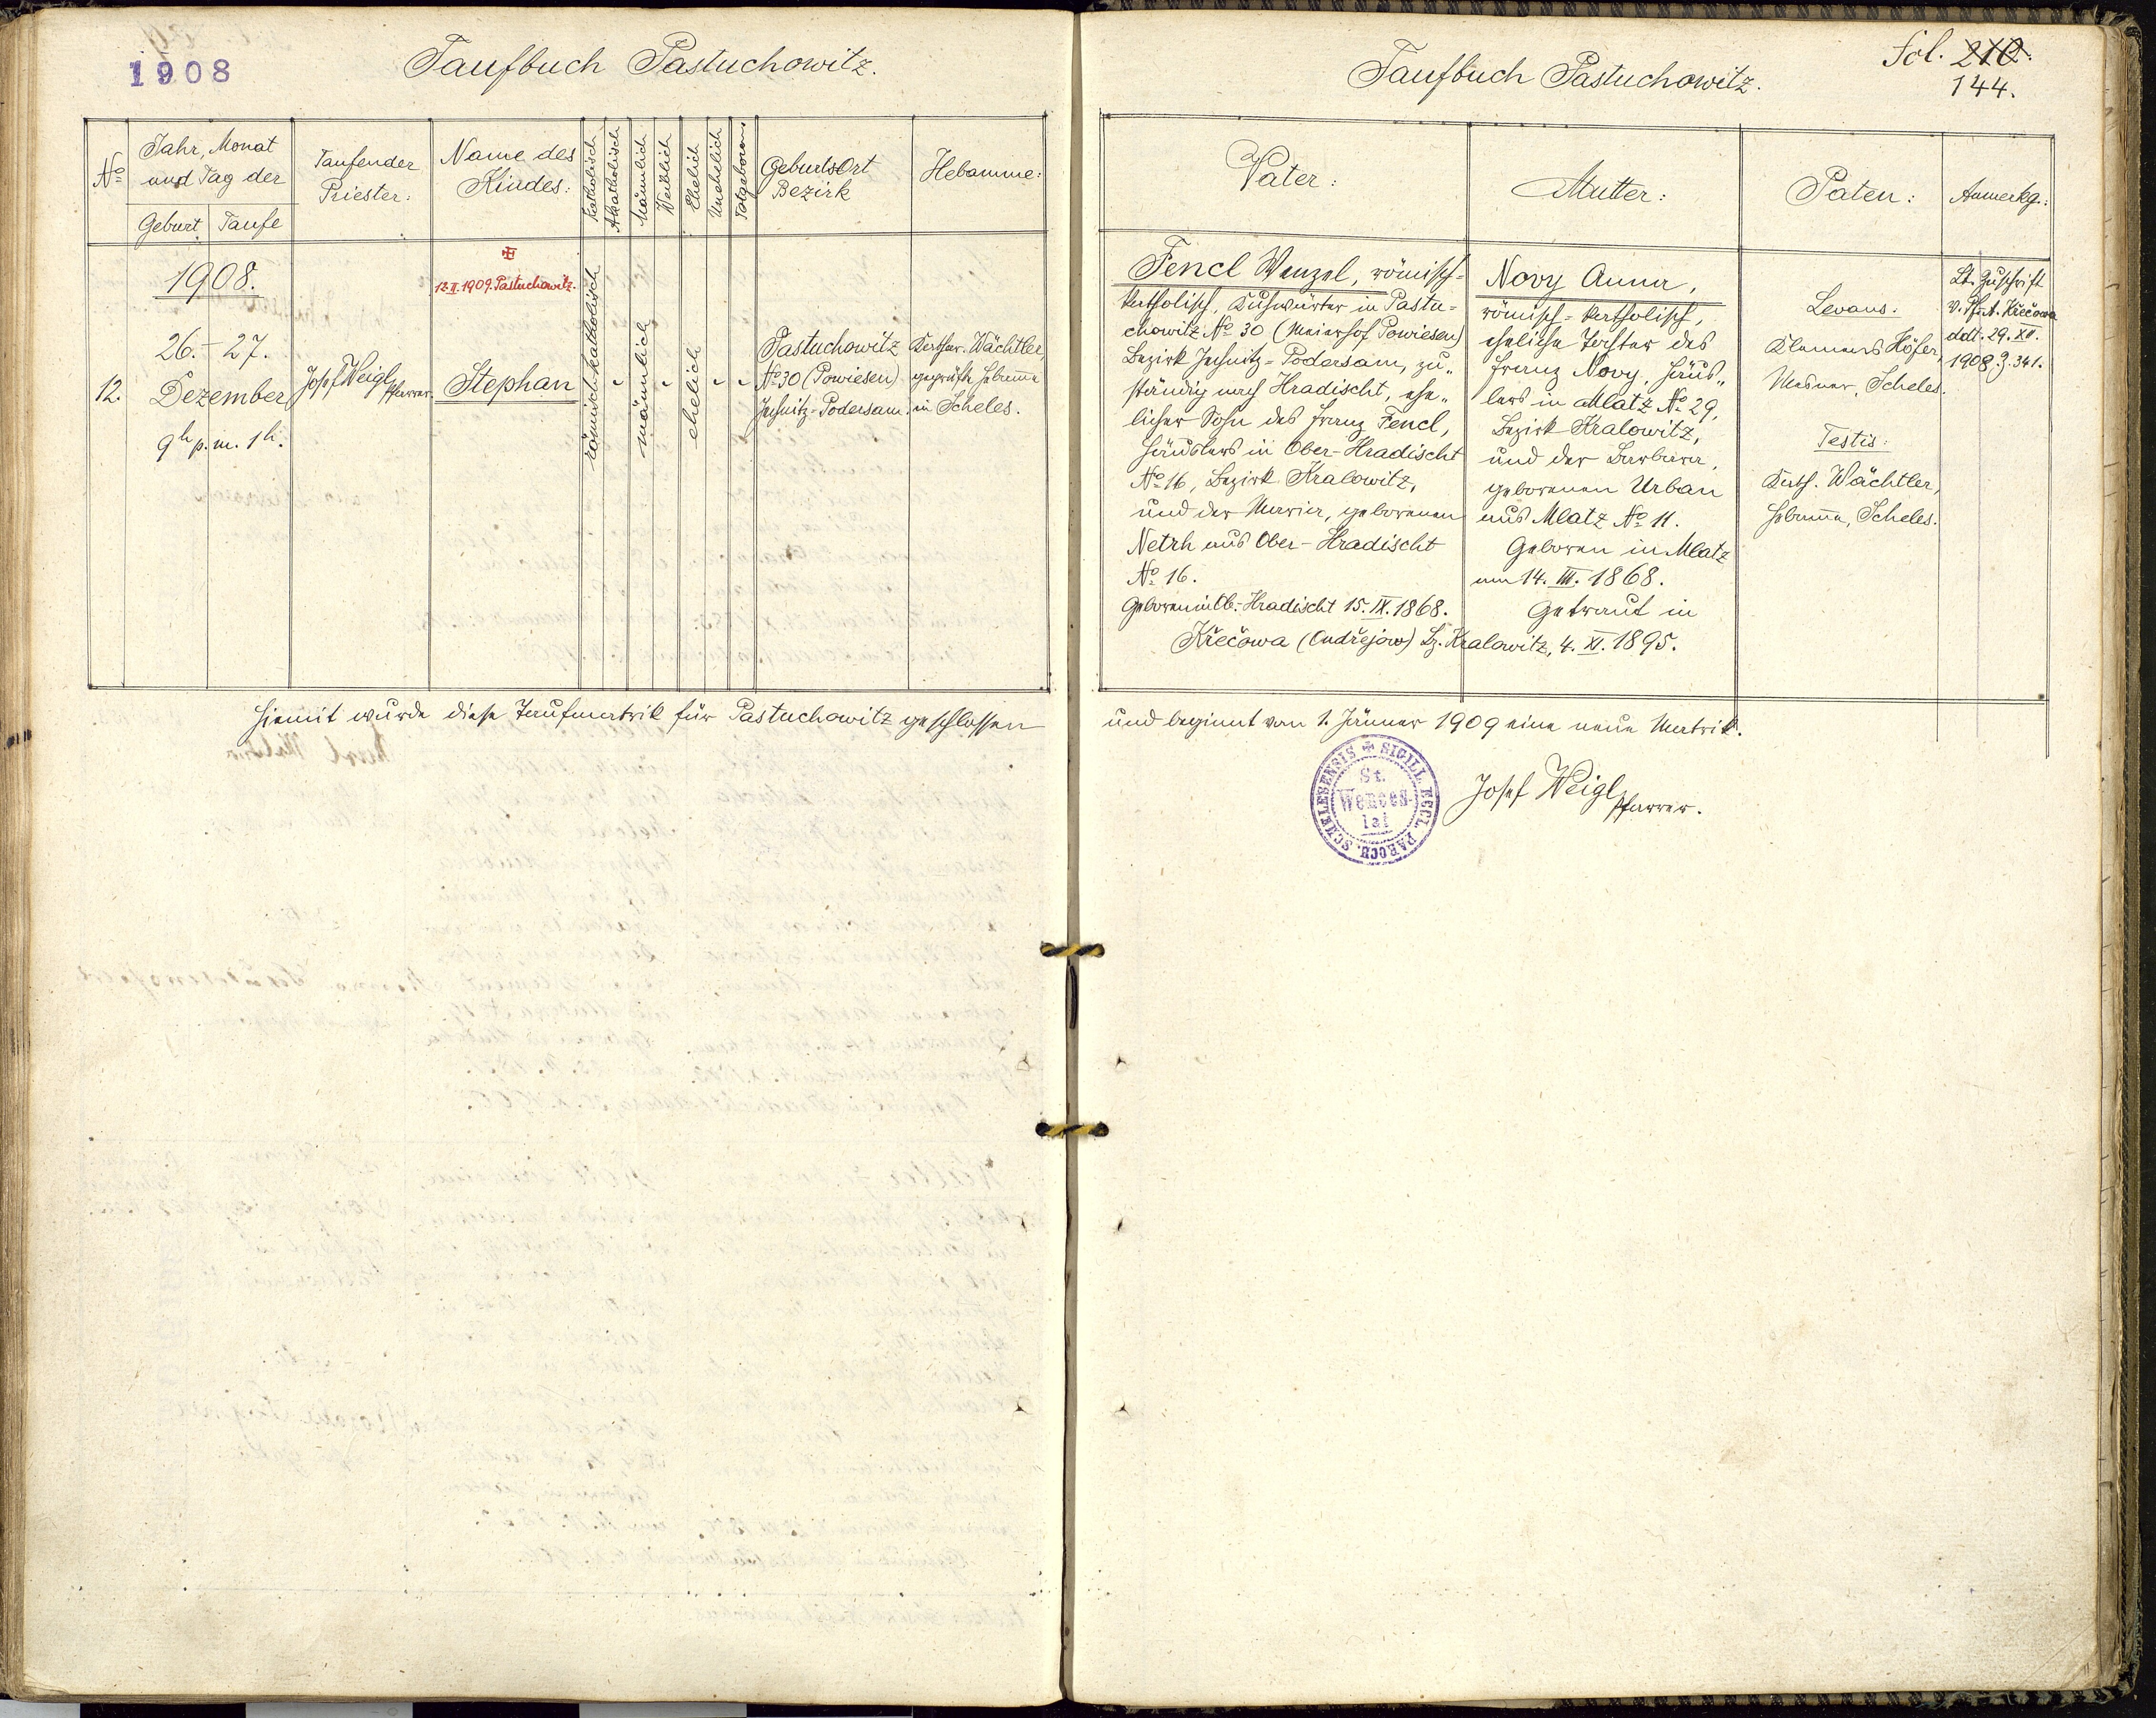 1908
Taufbuch Pastuchowitz.
Nº
Jahr, Monat
und Tag der
Geburt
Taufe
Taufender
Priester:
Name des
Kindes:
Katholisch
Akatholisch
Männlich
Weiblich
Ehelich
Unehelich
Totgeboren
GeburtsOrt
Bezirk
Hebamme:
12.
1908.
26. - 27.
Dezember
9h p.m. 1h.
Josef Weigl
Pfarrer.
12.II.1909. Pastuchowitz.
Stephan
römisch-katholisch
männlich
ehelich
Pastuchowitz
Nº 30 (Powiesen)
Jechnitz-Podersam.
Kathar. Wächtler,
geprüfte Hebamme
in Scheles.
Hiemit wurde diese Taufmatrik für Pastuchowitz geschlossen
Taufbuch Pastuchowitz.
Fol. 210.
144.
Vater:
Mutter:
Paten:
Anmerkg.:
Fencl Wenzel, römisch-
katholisch, Kuhwärter in Pastu-
chowitz Nº 30 (Meierhof Powiesen)
Bezirk Jechnitz-Podersam, zu„
ständig nach Hradischt, ehe„
licher Sohn des Franz Fencl,
Häuslers in Ober-Hradischt
Nº 16, Bezirk Kralowitz,
und der Maria, geborenen
Netrh aus Ober-Hradischt
Nº 16.
Geboren in Ob.-Hradischt 15.IX.1868.
Novy Anna,
römisch-katholisch,
eheliche Tochter des
Franz Novy, Häus„
lers in Mlatz Nº 29,
Bezirk Kralowitz,
und der Barbara,
geborenen Urban
aus Mlatz Nº 11.
Geboren in Mlatz
am 14. III. 1868.
Getraut in
Křečowa (Ondřejow) Bz. Kralowitz, 4. XI. 1895.
Levans:
Klemens Höfer,
Mesner, Scheles.
Testis:
Kath. Wächtler,
Hebamme, Scheles.
Lt. Zuschrift
v. Pf.A. Křečowa
ddt. 29. XII.
1908 Z. 341.
und beginnt vom 1. Jänner 1909 eine neue Matrik.
SIGILL. ECCL. PAROCH. SCHELESENSIS
St.
Wences-
lai
Josef Weigl
Pfarrer.